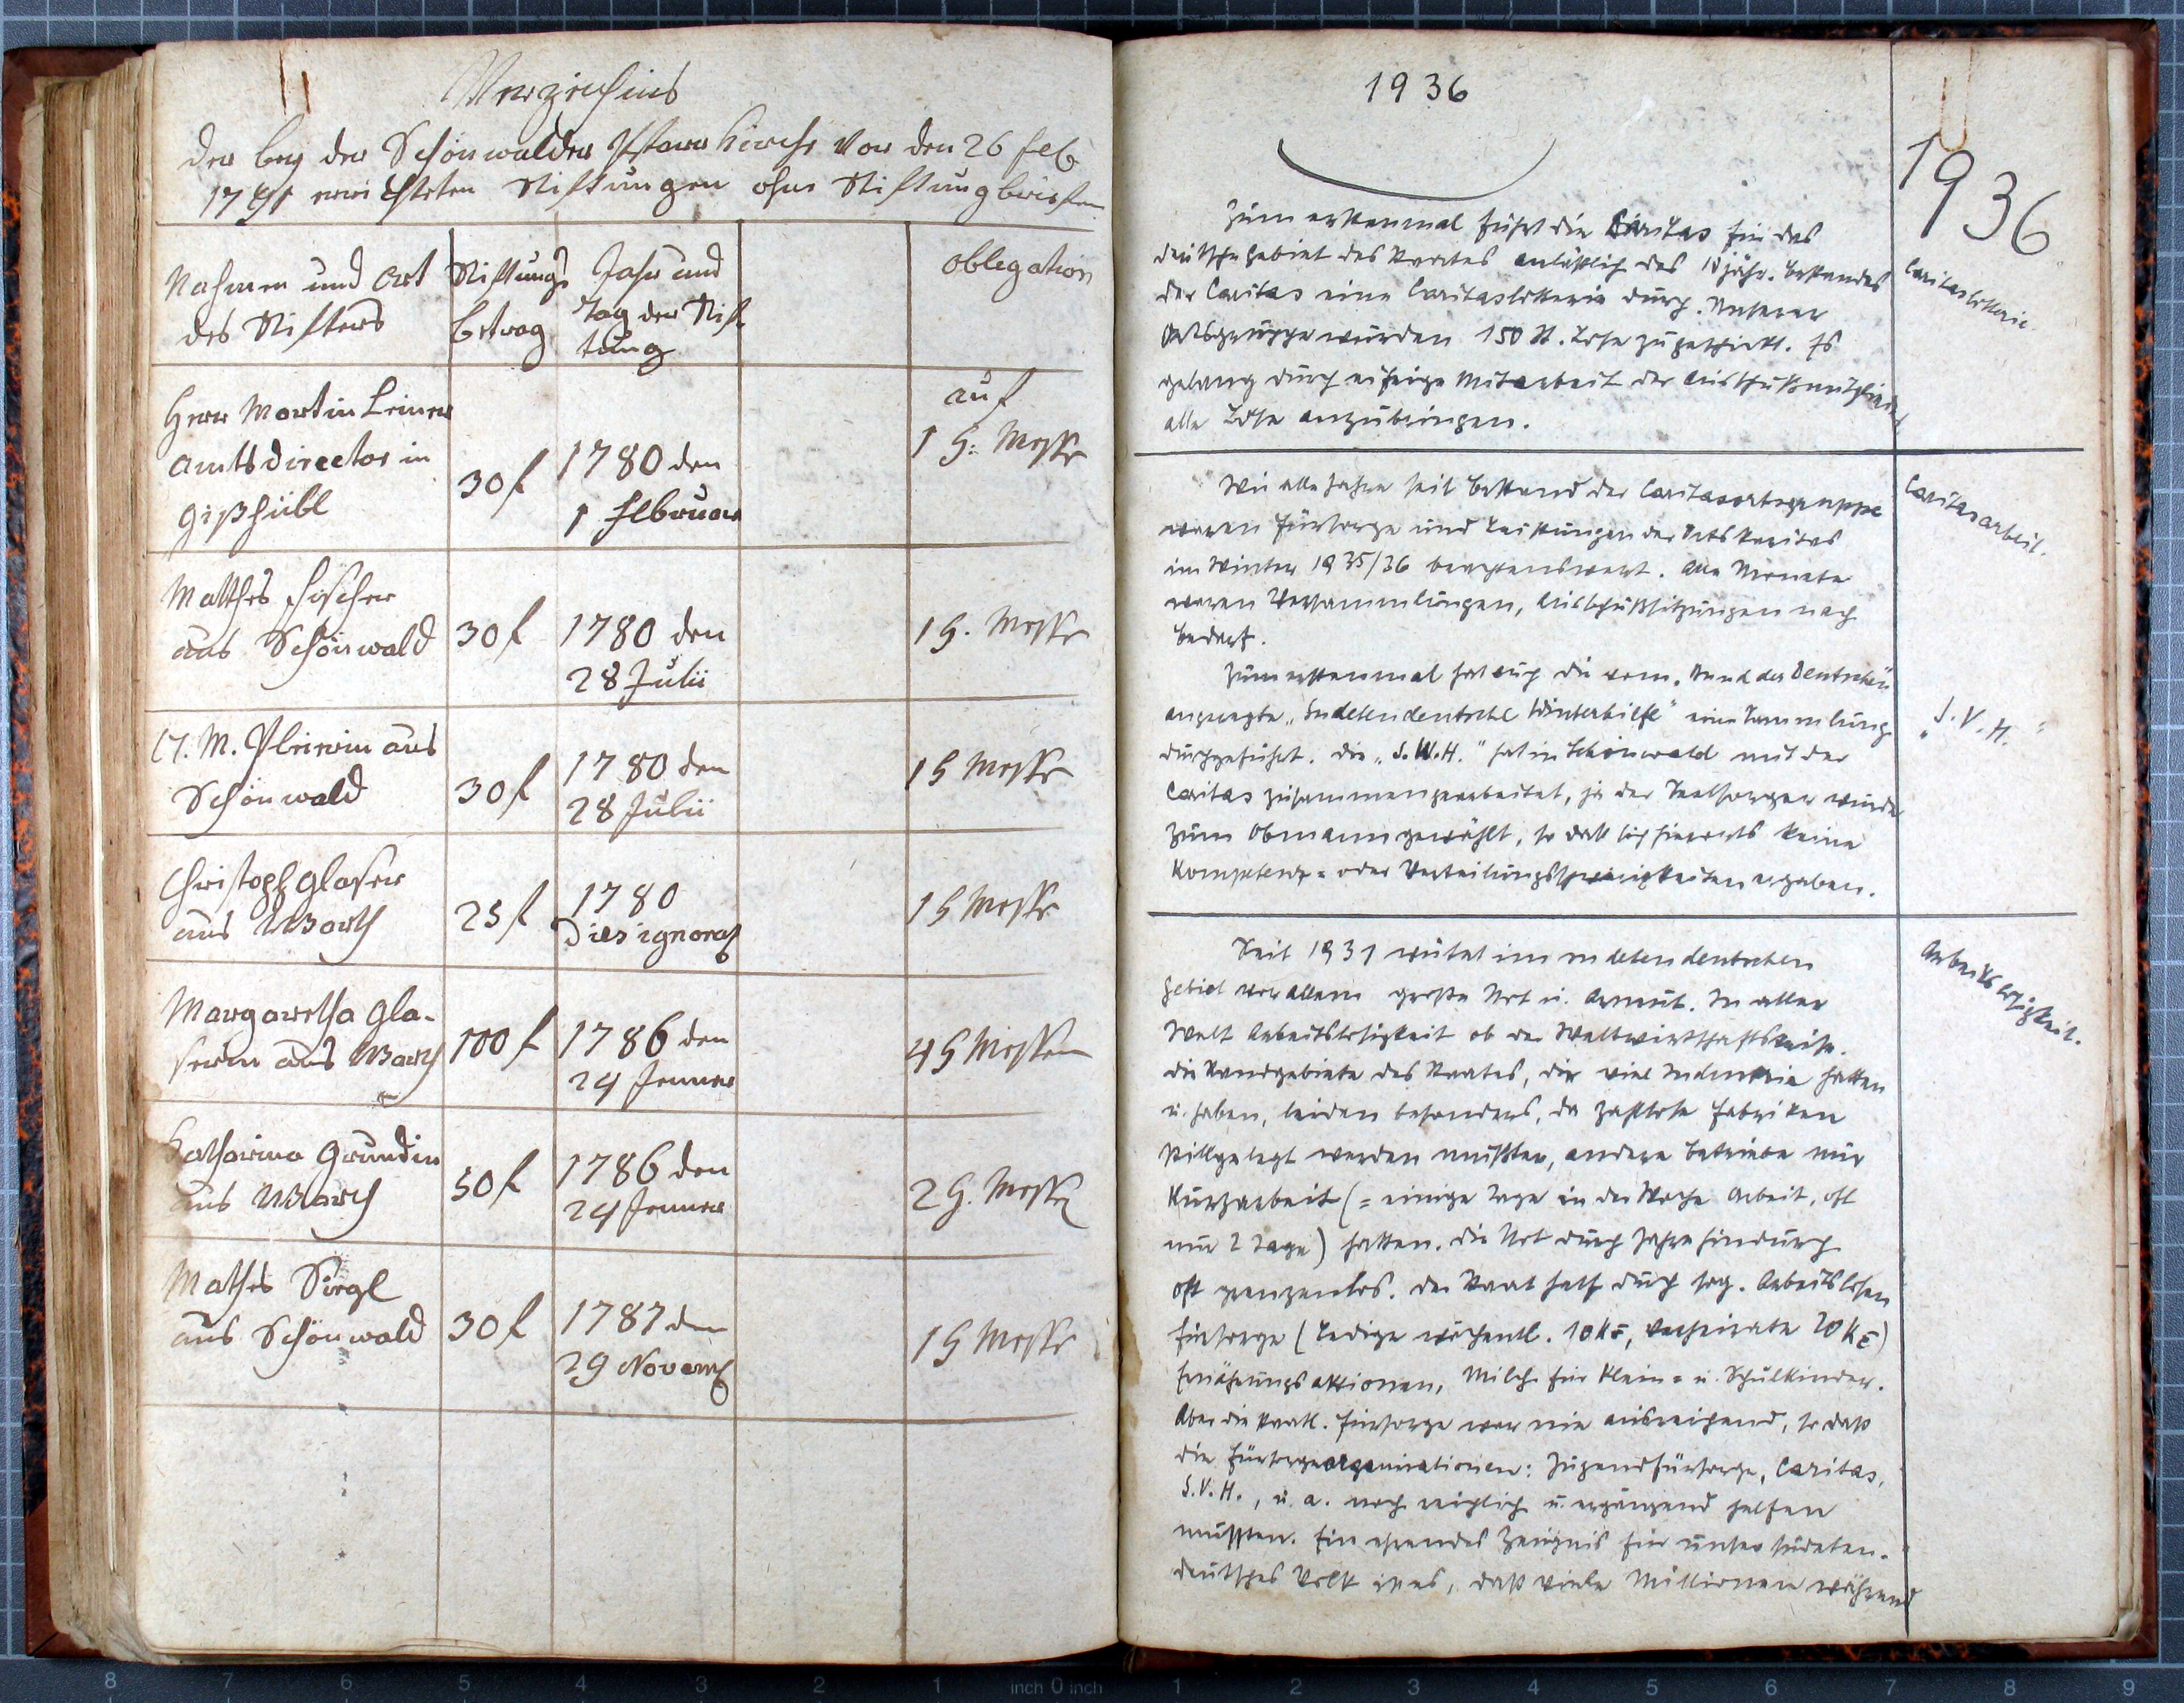 Verzeichnis
der bey der Schönwalder Pfarr Kirche vor den 26 feb
1791 errichteten Stiftungen ohne Stiftungbriefen
Nahmen und Ort
des Stifters
Stiftungs
betrag
Jahr und
Tag der Stif
tung
oblegation
Herr Martin Leiner
Amtsdirector in
Gißhübl
30 f
1780 den
1 Februar
auf
1 H: Messe
Matthes Fischer
aus Schönwald
30 f
1780 den
28 Julii
1 H. Messe
M. aus
Schönwald
30 f
1780 den
28 Julii
1 H Messe
Christoph Glaser
aus
25 f
1780
Dies ignorat
1 H Messe
Margaretha Gla-
serin aus
100 f
1786 den
24 Jenner
4 H Messen
Katharina Grundin
aus
50 f
1786 den
24 Jenner
2 H. Messe
Mathes Siegl
aus Schönwald
30 f
1787 den
29 Novemb
1 H Messe
1936
1936
Zum erstenmal führt die Caritas für das
deutsche Gebiet des Staates anläßlich des 10 jähr. Bestandes
der Caritas eine Caritaslotterie durch. Unserer
Ortsgruppe wurden 150 St. Lose zugeschickt. Es
gelang durch eifrige Mitarbeit der Ausschußmitglieder
alle Lose anzubringen.
Caritaslotterie.
Wie alle Jahre seit Bestand der Caritasortsgruppe
waren Fürsorge und Leistungen der Ortskaritas
im Winter 1935/36 beachtenswert. Alle Monate
waren Versammlungen, Ausschußsitzungen nach
Bedarf.
Caritasarbeit.
Zum erstenmal hat auch die vom "Bund der Deutschen"
angeregte "Sudetendeutsche Winterhilfe" eine Sammlung
durchgeführt. Die "S.W.H." hat in Schönwald mit der
Caritas zusammengearbeitet, ja der Seelsorger wurde
zum Obmann gewählt, so daß sich hierorts keine
Kompetenz- oder Verteilungsschwierigkeiten ergaben.
"S.V.H."
Seit 1931 wütet im sudetendeutschen
Gebiet vor allem große Not u. Armut. In aller
Welt Arbeitslosigkeit ob der Weltwirtschaftskrise.
Die Randgebiete des Staates, die viel Industrie hatten
u. haben, leiden besonders, da zahllose Fabriken
stillgelegt werden mußten, andere Betriebe nur
Kurzarbeit (= einige Tage in der Woche Arbeit, oft
nur 2 Tage) hatten. Die Not durch Jahre hindurch
oft grenzenlos. Der Staat half durch sog. Arbeitslosen
fürsorge (Ledige wöchentl. 10 Kč, Verheiratete 20 Kč)
Ernährungsaktionen, Milch für Klein- u. Schulkinder.
Aber die staatl. Fürsorge war nie ausreichend, so daß
die Fürsorgeorganisationen: Jugendfürsorge, Caritas,
S.V.H., u. a. noch reichlich u. ergänzend helfen
mußten. Ein ehrendes Zeugnis für unser sudeten-
deutsches Volk ist es, daß viele Millionen während
Arbeitslosigkeit.